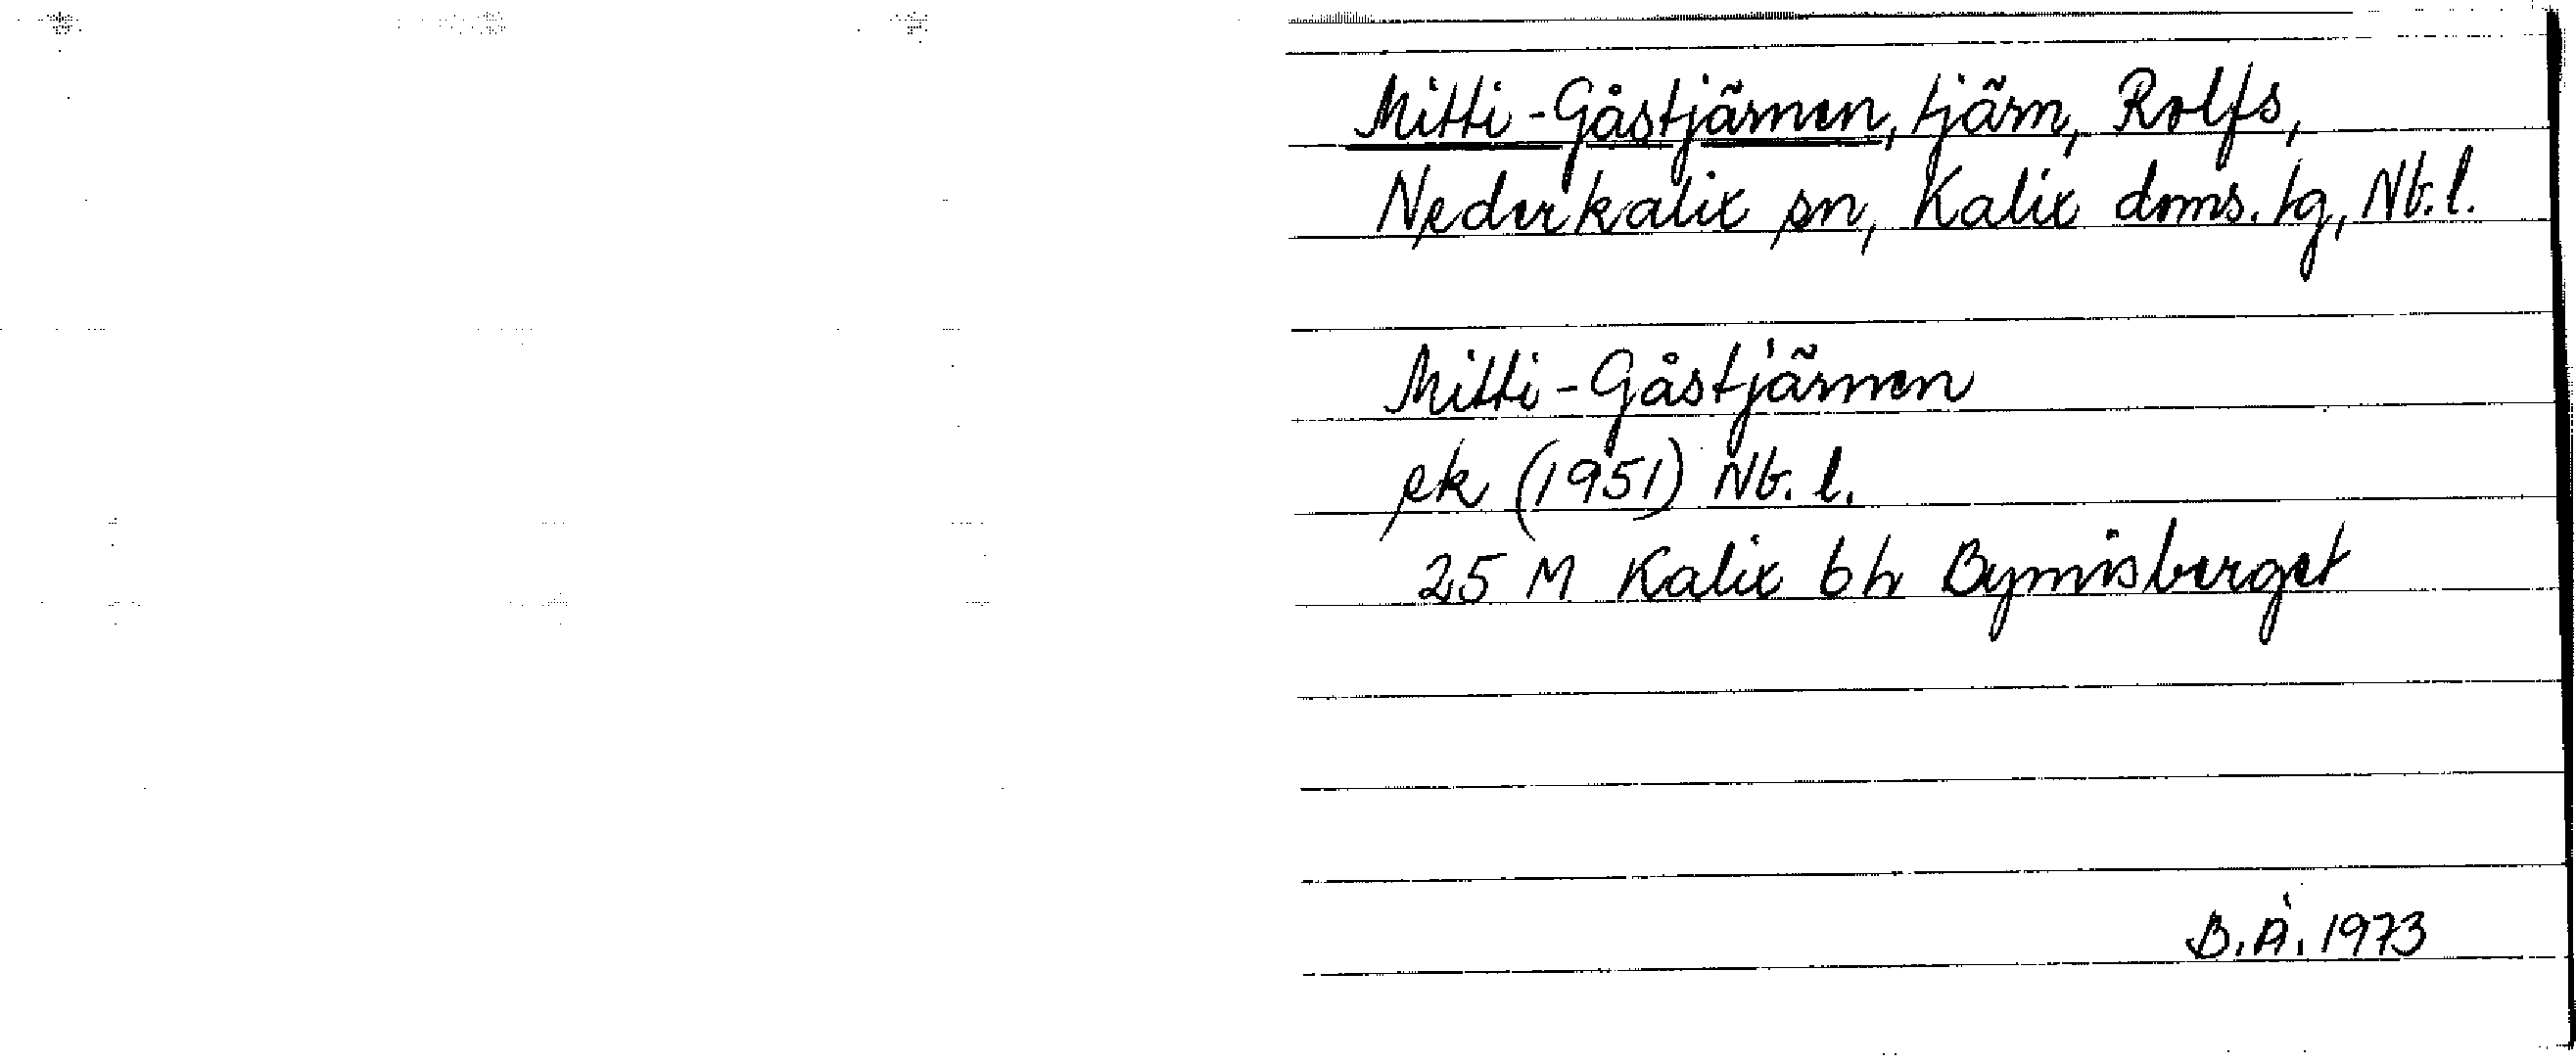 Mitti-Gåstjärnen, tjärn, Rolfs,
Nederkalix sn, Kalix doms. tg, Nb.l.
Mitti-Gåstjärnen
ek (1951) Nb. l.
25 M Kalix 6h Bymisberget
B.Å. 1973